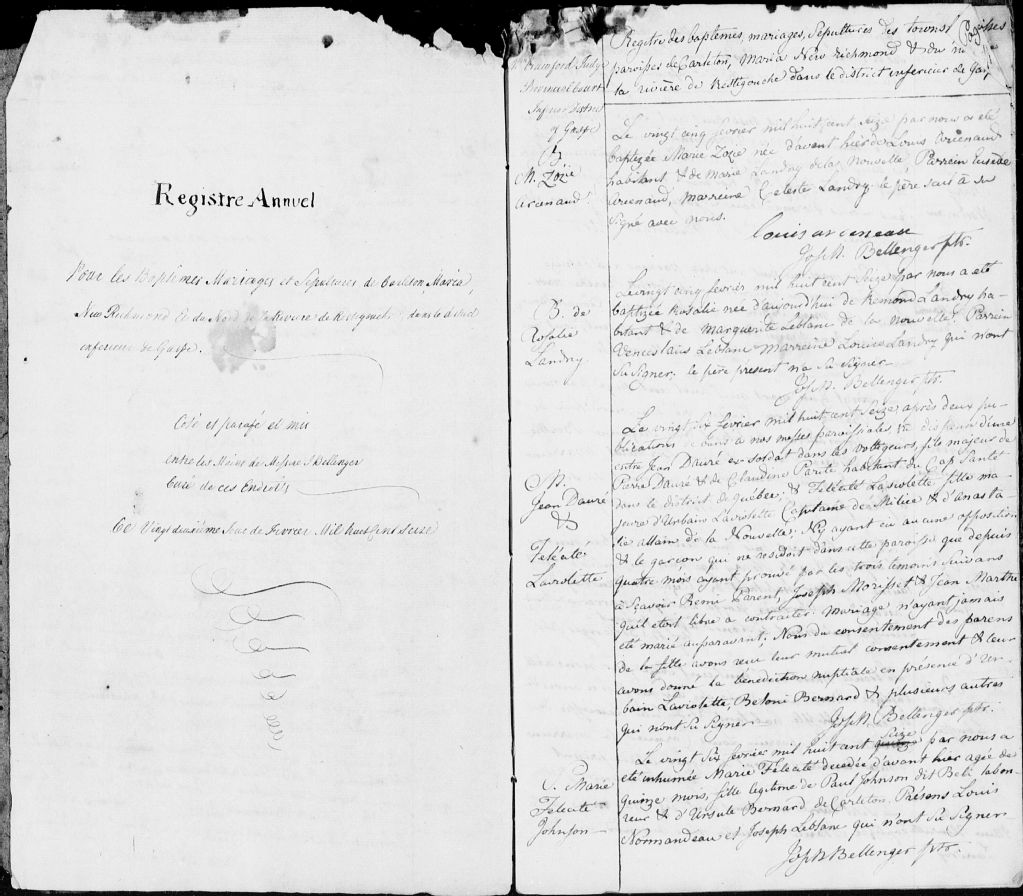 Registre Annuel
Pour les Baptêmes Mariages et Sépultures de Carleton, Maria,
New Richmond Et du Nord de la Riviere de Ristigouche dans le district
inferieur de Gaspé.
Coté et parafé et mis
entre les Mains de Messire J Bellenger
Curé de ces Endroits
Ce Vingt deuxième Jour de Fevrier Mil huit Cent Seize
Registre des baptemes, mariages, Sépultures des townsh
paroisses de Carleton, Maria New richmond & du no
la rivière de Restigouche dans le district inferieur de Gas
Crawford Judge
Provincial Court
Inferior District
of Gaspé
B
M. Zoïe
Arcenaud
Le vingt cinq fevrier mil huit cent Seize par nous a eté
baptizée Marie Zoïe née d'avant hier de Louis Arcenaud
habitant & de Marie Landry de la Nouvelle Parrein Eusèbe
Arcenaud, Marreine Celeste Landry le père sait à su
Signé avec nous.
Louis arceneau
Josph. Bellenger ptr.
B. de
Rosalie
Landry
Le vingt cinq fevrier mil huit cent Seize par nous a eté
baptizée Rosalie née d'aujourdhui de Remond Landry ha-
bitant & de Marguerite Leblanc de la Nouvelle. Parrein
Venceslaüs Leblanc Marreine Louise Landry qui n'ont
Sû Signer. le père present n'a sû Signer
Josph. Bellenger ptr.
M.
Jean Dauré
&
Felécité
Laviolette
Le vingt Six fevrier mil huit cent Seize après deux pu-
blications de bans à nos messes paroissiales, vû dispense d'une
entre Jean Dauré ex-soldat dans les voltigeurs, fils majeur de
Pierre Dauré & de Claudine Parité habitant du Cap Santet
dans le district de Québec; & Felécité Laviolette fille ma-
jeure d'Urbain Laviolette Capitaine de Milice & d'Anasta-
sie allain de la Nouvelle; N'y ayant eû aucune opposition
& le garçon qui ne residoit dans cette paroisse que depuis
quatre mois ayant prouvé par les trois temoins Suivans
à Seavoir Remi Parent, Joseph Morisset & Jean Marthe
qu'il etoit libre a contracter mariage n'ayant jamais
eté marié auparavant; Nous du consentement des parens
de la fille avons reçu leur mutuel consentement & leur
avons donné la bénédiction nuptiale en présence d'Ur-
bain Laviolette, Beloni Bernard & plusieurs autres
qui n'ont Sû Signer.
Josph. Bellenger ptr.
S. Marie
Felécité
Johnson
Le vingt Six fevrier mil huit cent Seize par nous a
eté inhumée Marie Felécité decedée d'avant hier agée de
quinze mois, fille legitime de Paul Johnson dit Beti labou-
reur & d'Ursule Bernard de Carleton. Présens Louis
Normandeau et Joseph Leblanc qui n'ont Sû Signer
Josph Bellenger ptr.